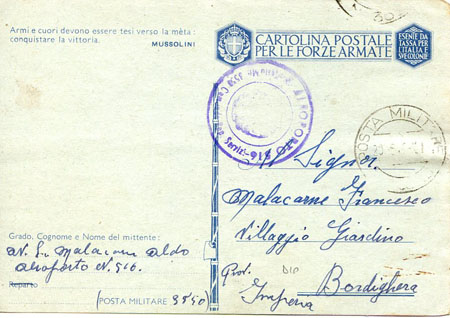 Armi e cuori devono essere tesi verso la mèta:
conquistare la vittoria.
MUSSOLINI
CARTOLINA POSTALE
PER LE FORZE ARMATE
ESENTE DA
TASSA PER
L'ITALIA E
SVE COLONIE
AEROPORTO 916
POSTA MILITARE
Signor
Malacarne Francesco
Villaggio Giardino
Prov. DIP Bordighera
Imperia
Grado, Cognome e Nome del mittente:
Malacarne Aldo
Aeroporto N. 916.
Reparto
(POSTA MILITARE 3550)